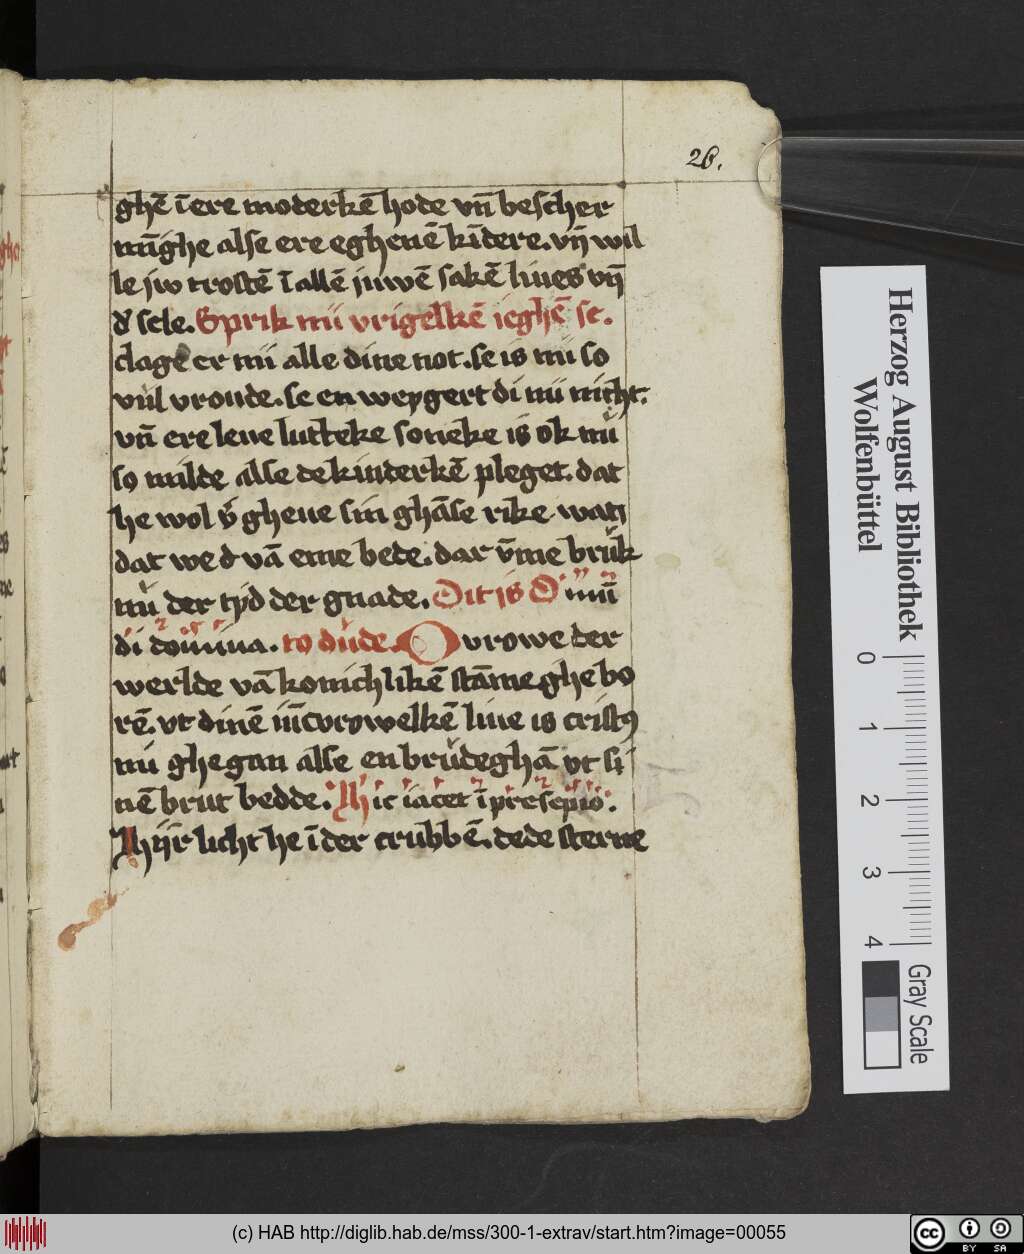 26.
ghē ī ere moderkē hode vn̄ bescher
mīghe alse ere eghenē kīdere. vn̄ wil
le jw trostē ī allē juwē sakē liues vn̄
d' sele. Sprik nu vrigelkē ieghē se.
clage er nu alle dine not. se is nu so
vul vroude. se en weygert di nu nicht.
vn̄ ere leue lutteke soneke is ok nu
so milde alse de kinderkē pleget. dat
he wol v' gheue sin ghāse rike wan
dat we d vā eme bede. dar v̄me bruk
nu der tyd der gnade. Dit is O mū
di domina. to dude. O vrowe der
werlde vā konichlikē stāme ghe bo
rē. vt dinē iūcvrowelkē liue is cristꝰ
nu ghegan alse en brudeghā vt si
nē brut bedde. Hic iacet ī presepio.
Hijr licht he ī der crubbē. dede sterne
Herzog August Bibliothek
Wolfenbüttel
0 1 2 3 4
Gray Scale
(c) HAB http://diglib.hab.de/mss/300-1-extrav/start.htm?image=00055
cc BY SA